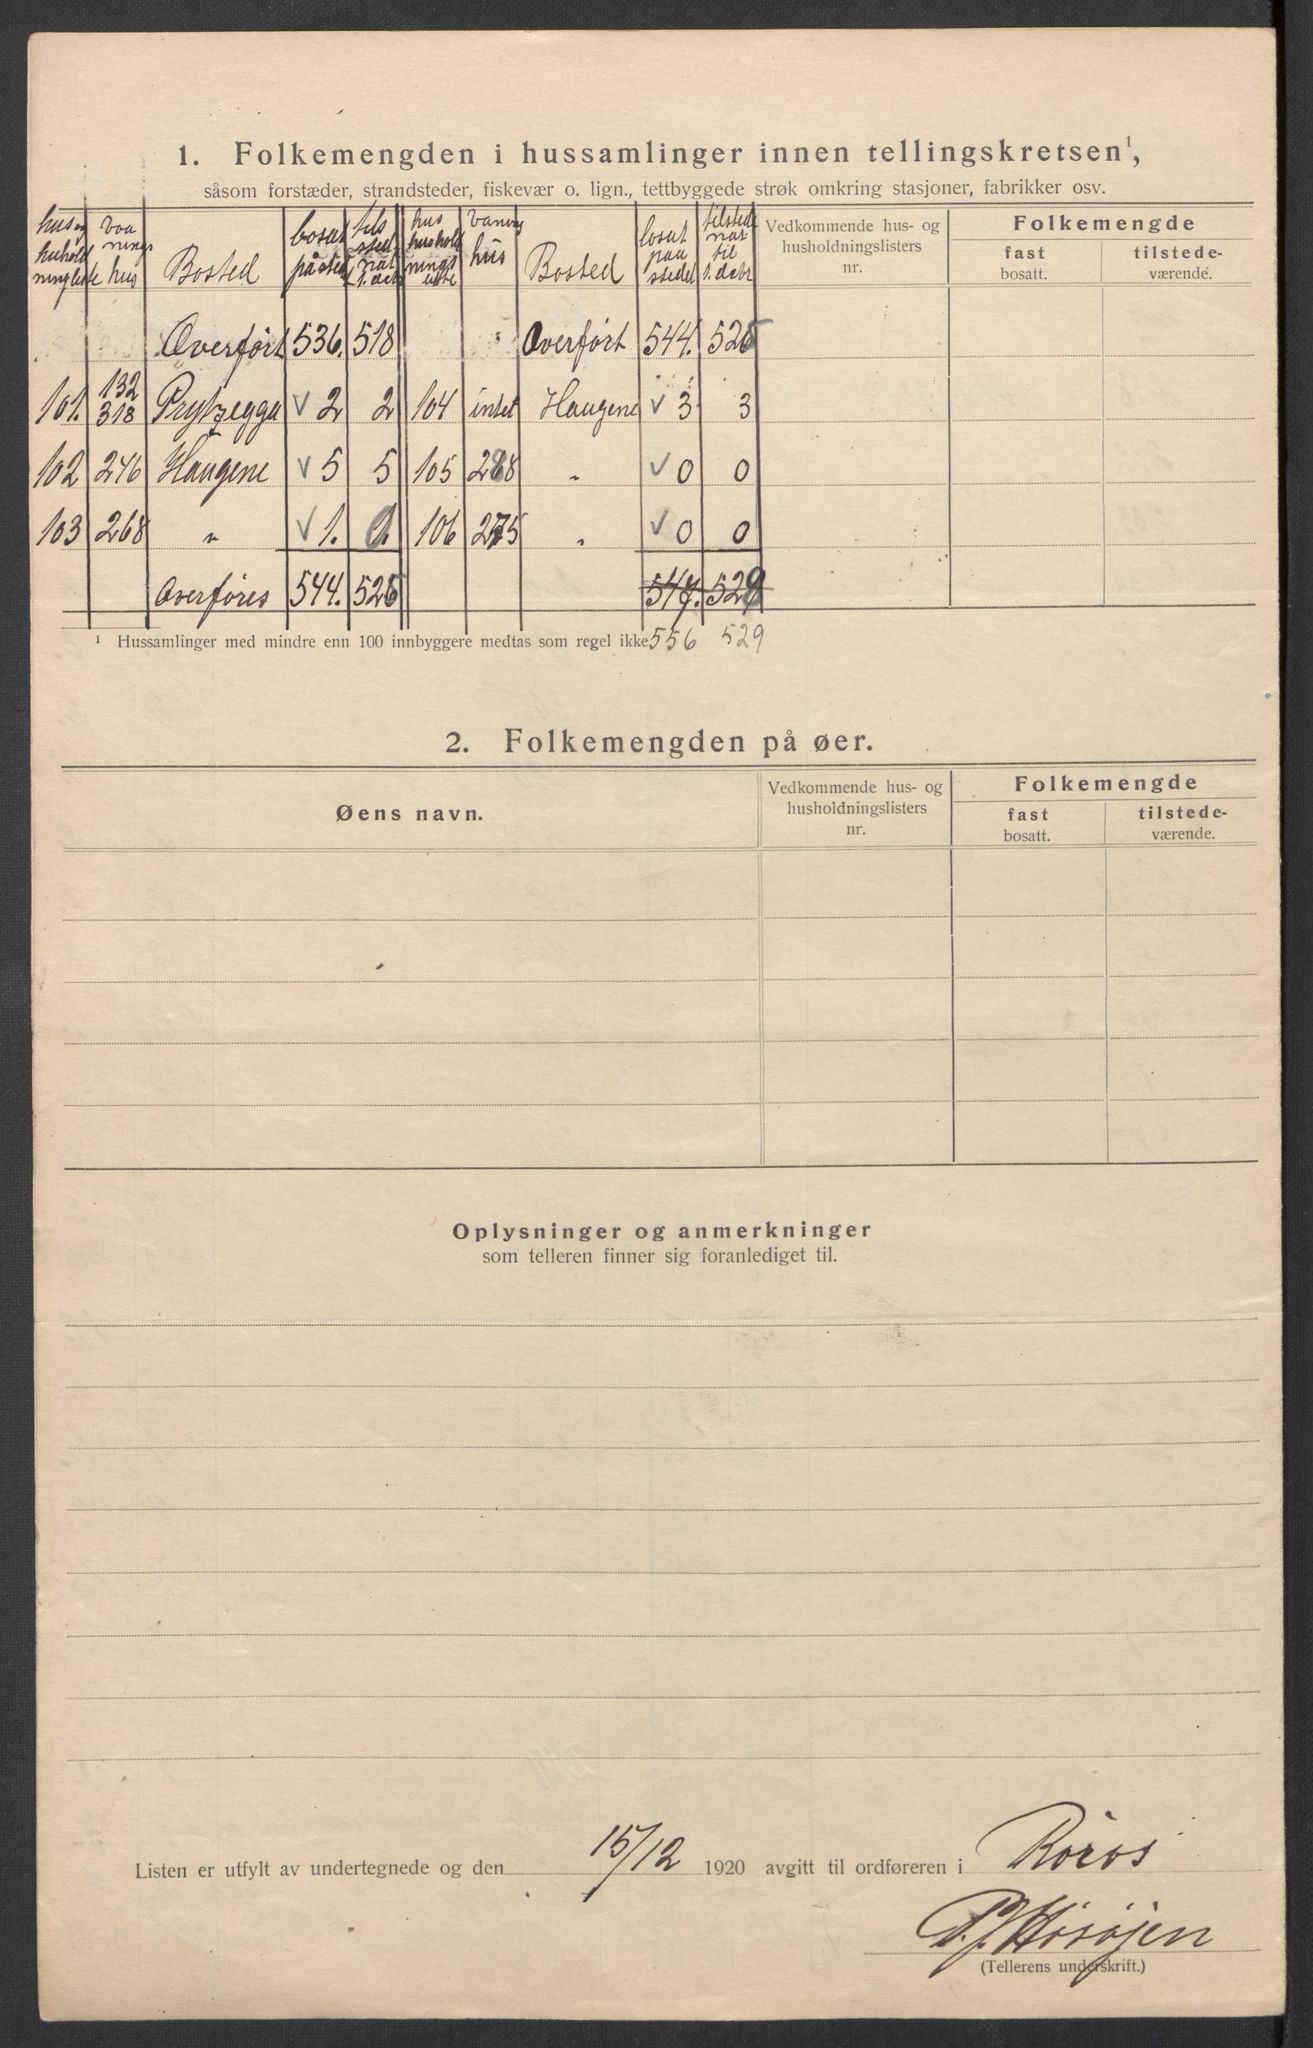 1. Folkemengden i hussamlinger innen tellingskretsen¹,
såsom forstæder, strandsteder, fiskevær o. lign., tettbyggede strøk omkring stasjoner, fabrikker osv.
Bosted bosat på sted hus Bosted bosat paa stedet tilstede nar til 1. debr
Vedkommende hus- og husholdningslisters nr. Folkemengde
fast bosatt. tilstede-værende.
Overført 536. 518 Overført 544. 525
101. 132 318 Prytzegga √ 2 2 104 intet Haugene √ 3 3
102 246 Haugene √ 5 5 105 268 „ √ 0 0
103 268 „ √ 1. 0 106 275 „ √ 0 0
Overføres 544. 525 547. 528
¹ Hussamlinger med mindre enn 100 innbyggere medtas som regel ikke 556 529
2. Folkemengden på øer.
Øens navn. Vedkommende hus- og husholdningslisters nr. Folkemengde
fast bosatt. tilstede-værende.
Oplysninger og anmerkninger
som telleren finner sig foranlediget til.
Listen er utfylt av undertegnede og den 15/12 1920 avgitt til ordføreren i Røros
P. J. Høsøjen
(Tellerens underskrift.)